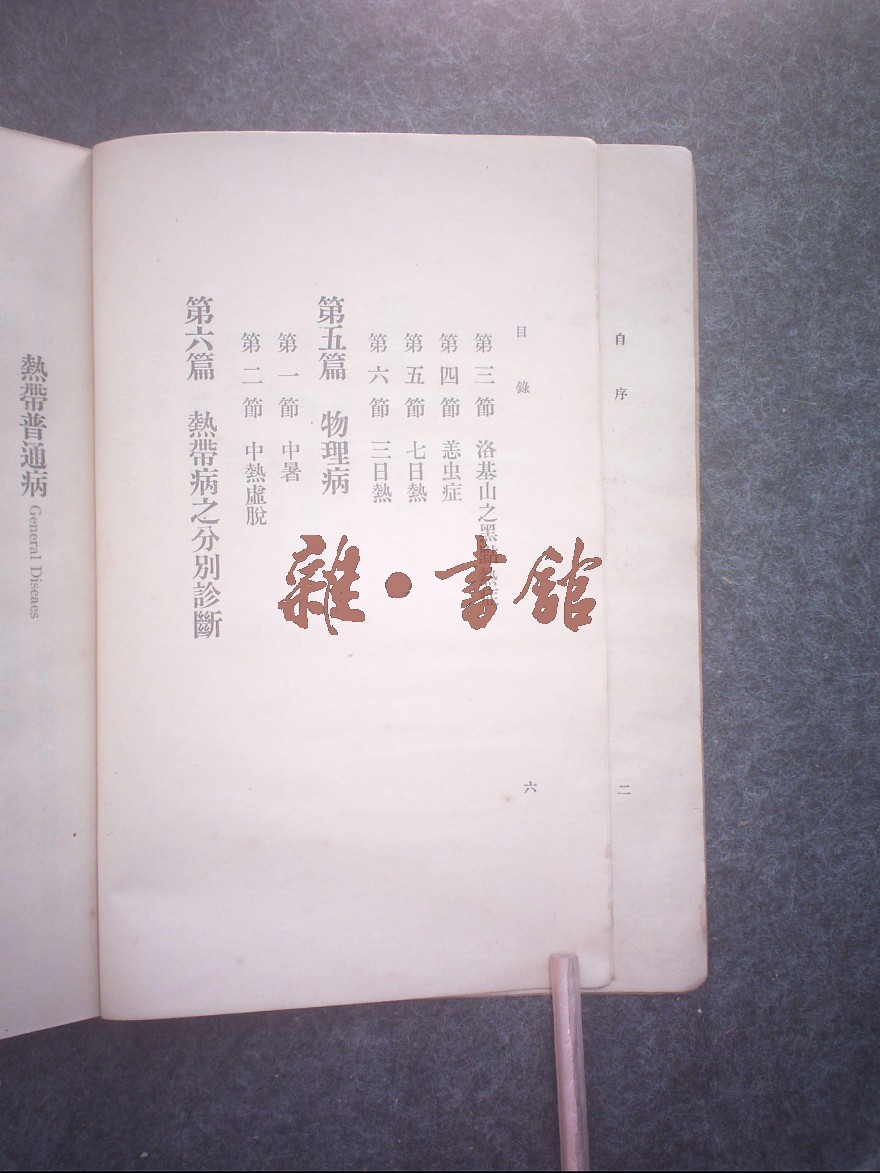 自序
二
目錄
第三節 洛基山之黑
第四節 恙虫症
第五節 七日熱
第六節 三日熱
第五篇 物理病
第一節 中暑
第二節 中熱虛脫
第六篇 熱帶病之分別診斷
六
熱帶普通病 General Diseaes
雜·書館